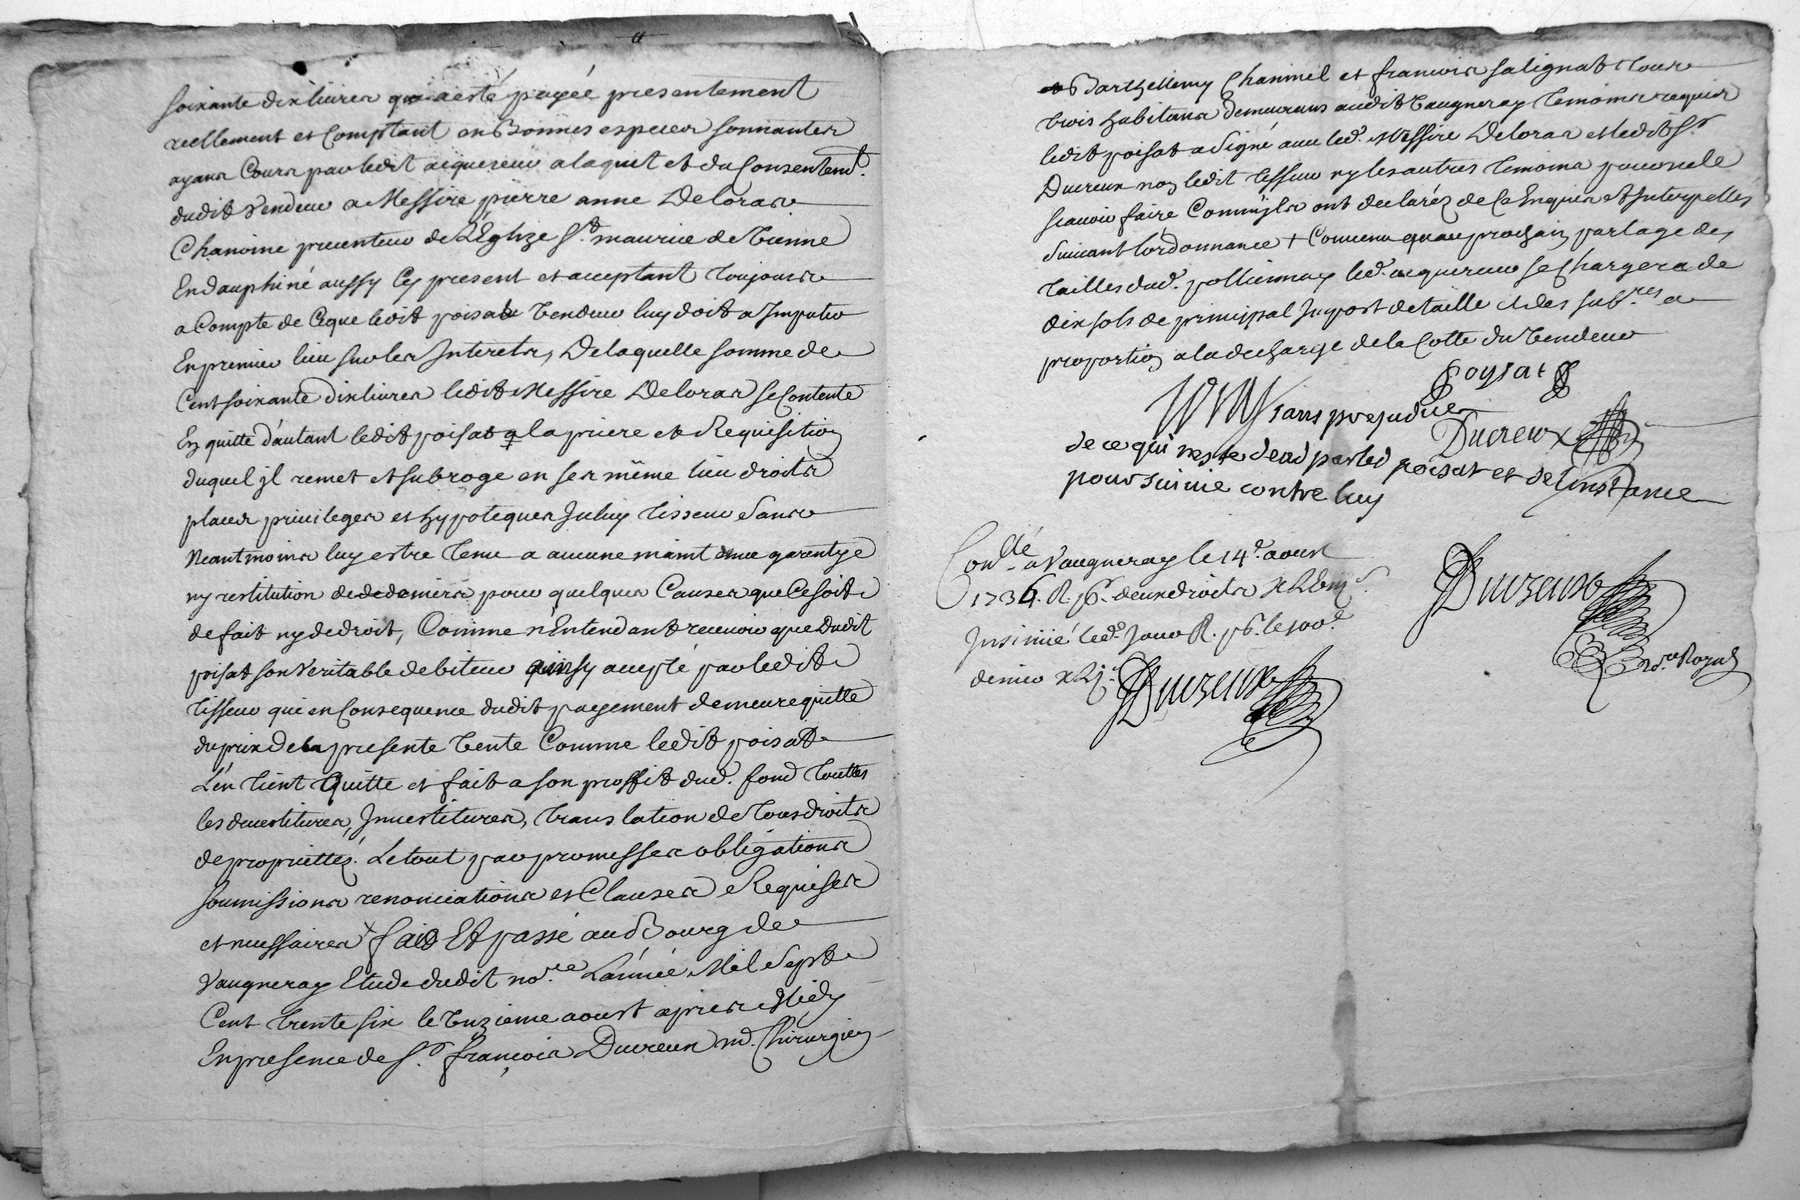 soixante dix livres qui a esté payée presentement
reellement et Comptant en Bonnes especes sonnantes
ayans Cours par ledit acquereur a laquit et du Consentemt.
dudit Vendeur a Messire pierre anne Deloras
Chanoine precenteur de L'Eglize St. maurice de Vienne
En dauphiné aussy Cy present et acceptant toujours
a Compte de Ceque ledit poisat Vendeur luy doit a Imputer
En premier lieu sur les Interets, De laquelle somme de
Cent soixante dix livres ledit Messire Deloras se Contente
En quitte d'autant ledit poisat a la priere et Requisition
duquel jl remet et subroge en ses même lieu droits
places privileges et hypoteques Iceluy tisseur Sans
Neantmoins luy estre tenu a aucune maint garentye
ny restitution de deniers pour quelques Causes que Ce soit
de fait ny de droit, Comme n'Entendant recevoir que dudit
poisat son Veritable debiteur ainsy accepté par ledit
tisseur qui en Consequence dudit payement demeure quitte
du prix De la presente Vente Comme ledit poisat
L'en tient quitte et fait a son proffit dud. fond touttes
les devestitures, Investitures, translation de tous droits
de proprietéz. Le tout par promesses obligations
soumissions renonciations et Clauses Requises
et necessaires + fait Et passé au Bourg de
Vaugneray Etude dudit nore. L'année Mil Sept
Cent trente six le unzieme aoust apres Midy
En presence de Sr. françois Ducreux md. Chirurgien
Barthellemy Chanmel et francois salignat tous
trois habitans demeurans audit Vaugneray temoins requis
ledit poisat a signé avec led. Messire Deloras et ledit Sr.
Ducreux non ledit tisseur ny les autres temoins pour ne le
scavoir faire Comm'jls ont declaréz de Ce Enquis et Interpellés
suivant lordonnance + Convenu quau prochain partage des
tailles dud. pollionnay led. acquereur se Chargera de
dix sols de principal Import de taille et des subres. a
proportion a la decharge de la Cotte du Vendeur
poysat
sans prejudice
Ducreux
de ce qui reste deub par led poisat et de linstance
poursuivie contre luy
Conllé a Vaugneray le 14e. aoust
1736. R.
Insinué led. Jour R.
denier